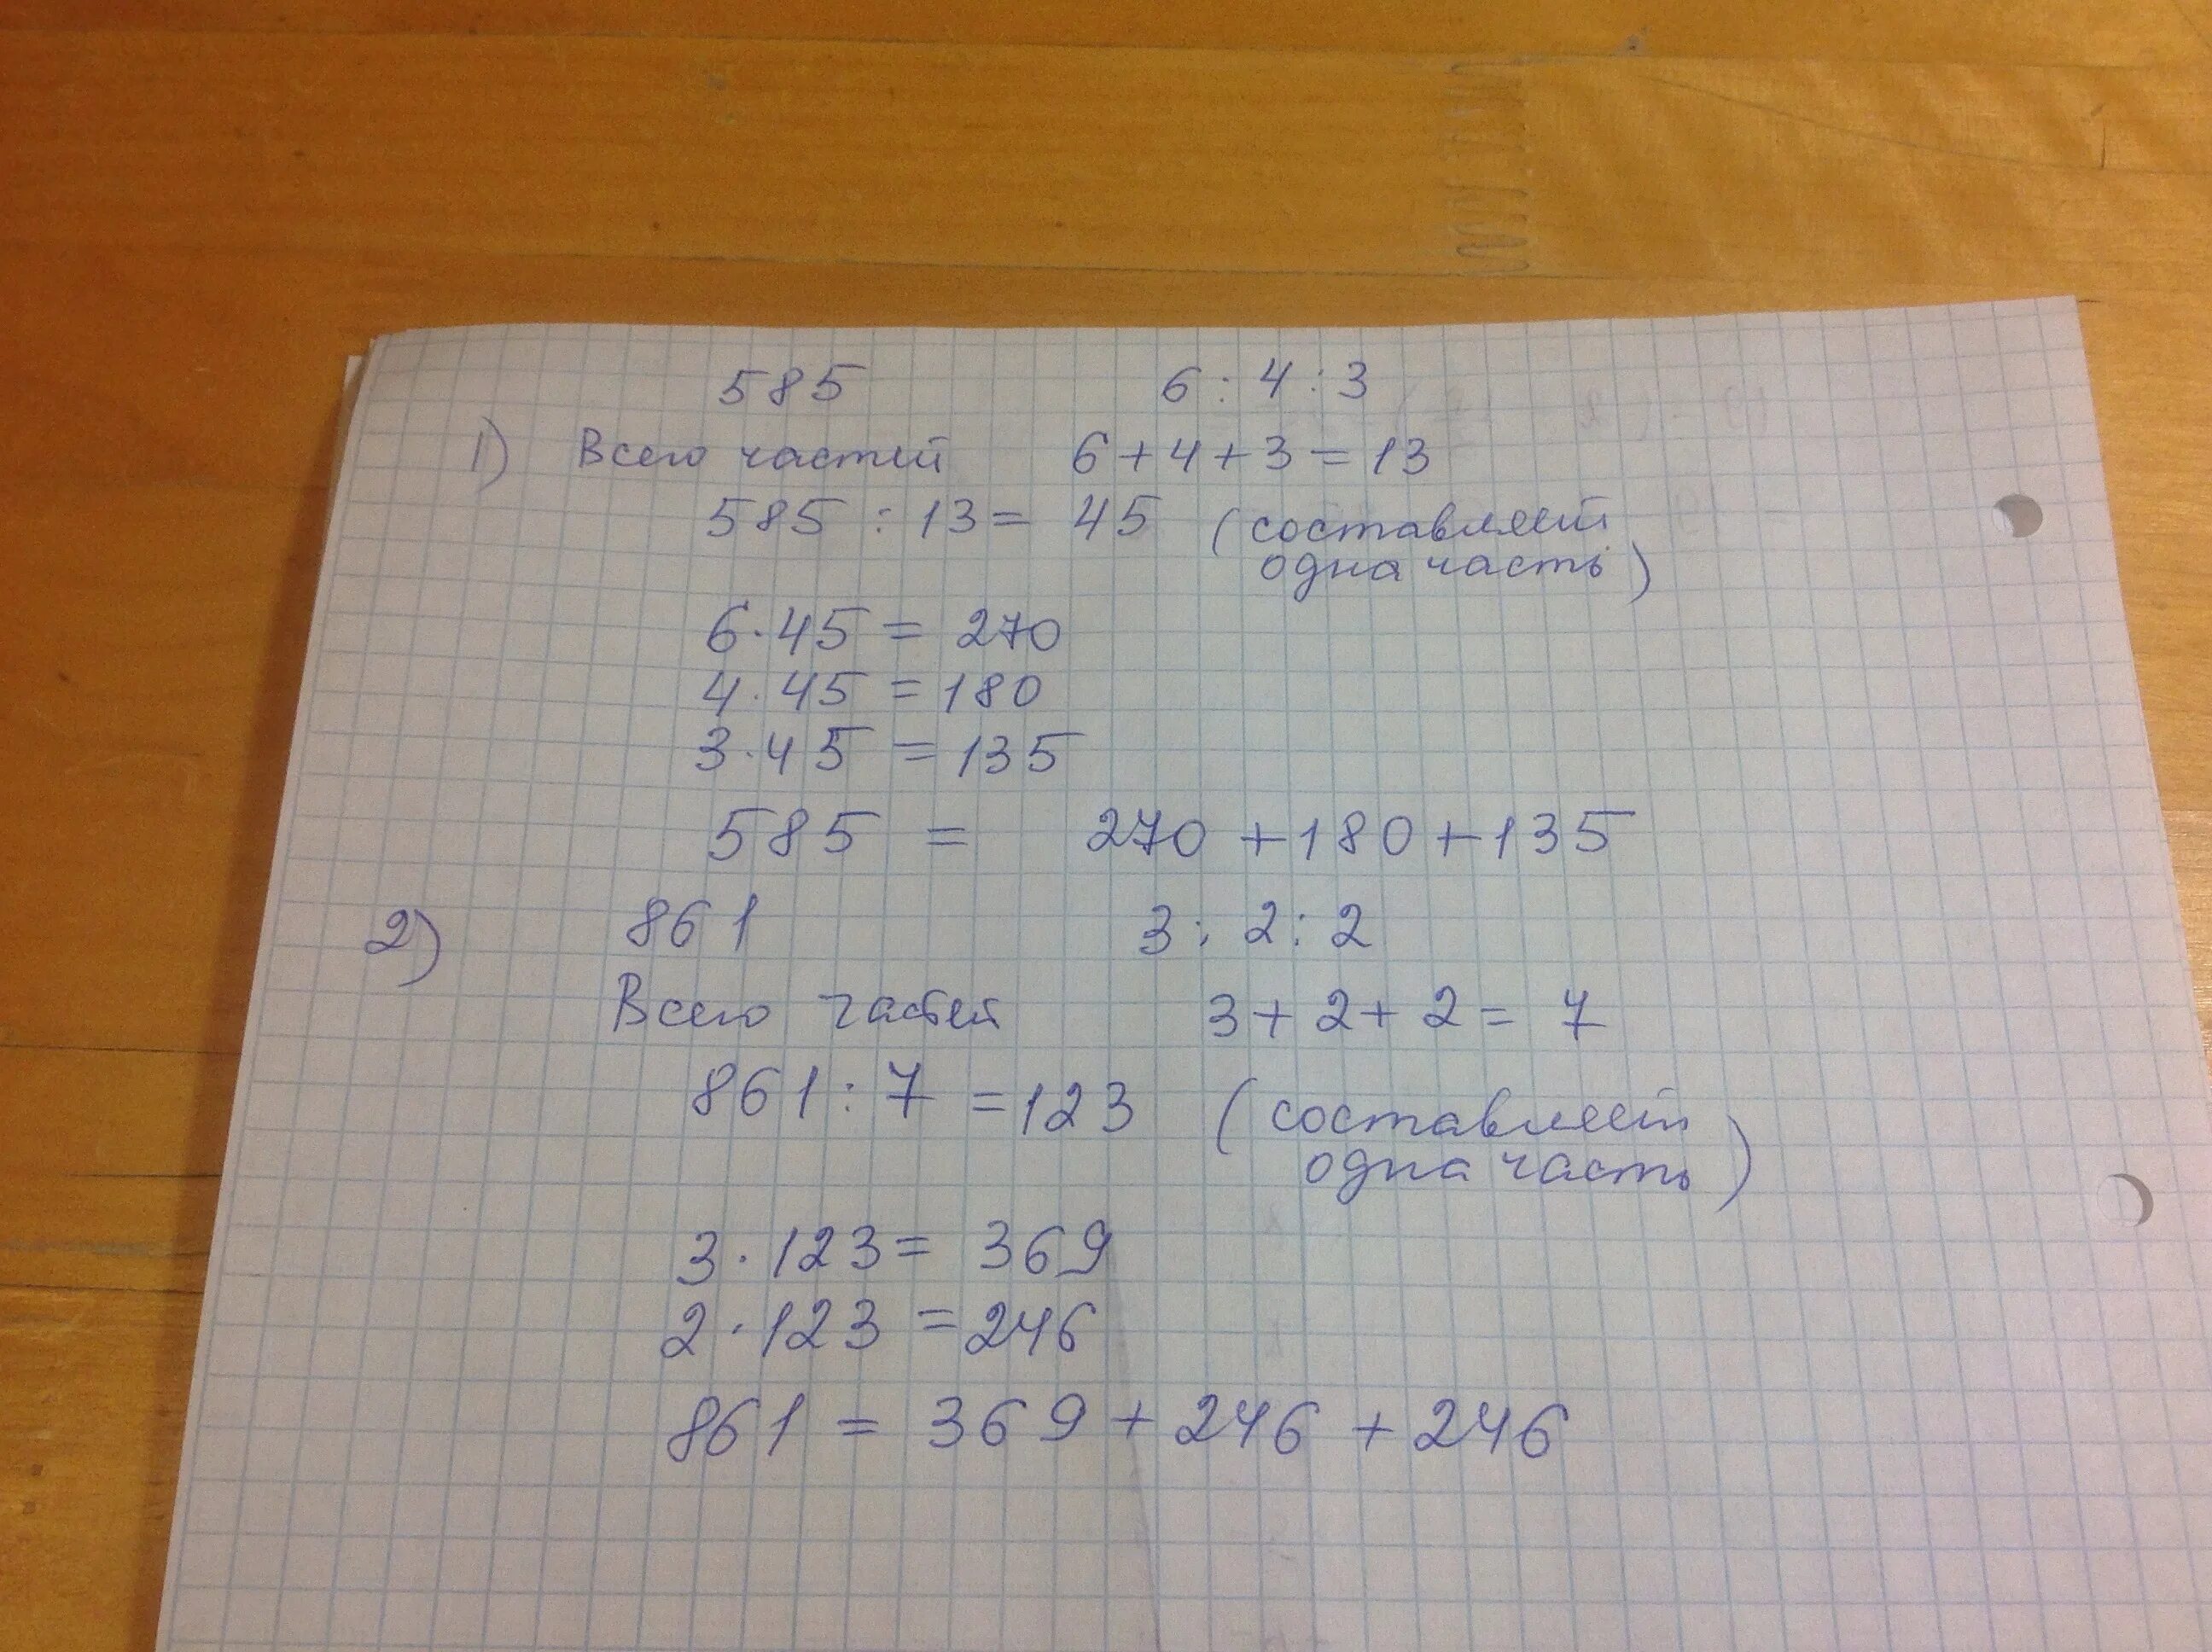 585 6 : 4 : 3
1) Всего частей 6 + 4 + 3 = 13
585 : 13 = 45 (составляет
одна часть)
6 · 45 = 270
4 · 45 = 180
3 · 45 = 135
585 = 270 + 180 + 135
2) 861 3 : 2 : 2
Всего частей 3 + 2 + 2 = 7
861 : 7 = 123 (составляет
одна часть)
3 · 123 = 369
2 · 123 = 246
861 = 369 + 246 + 246